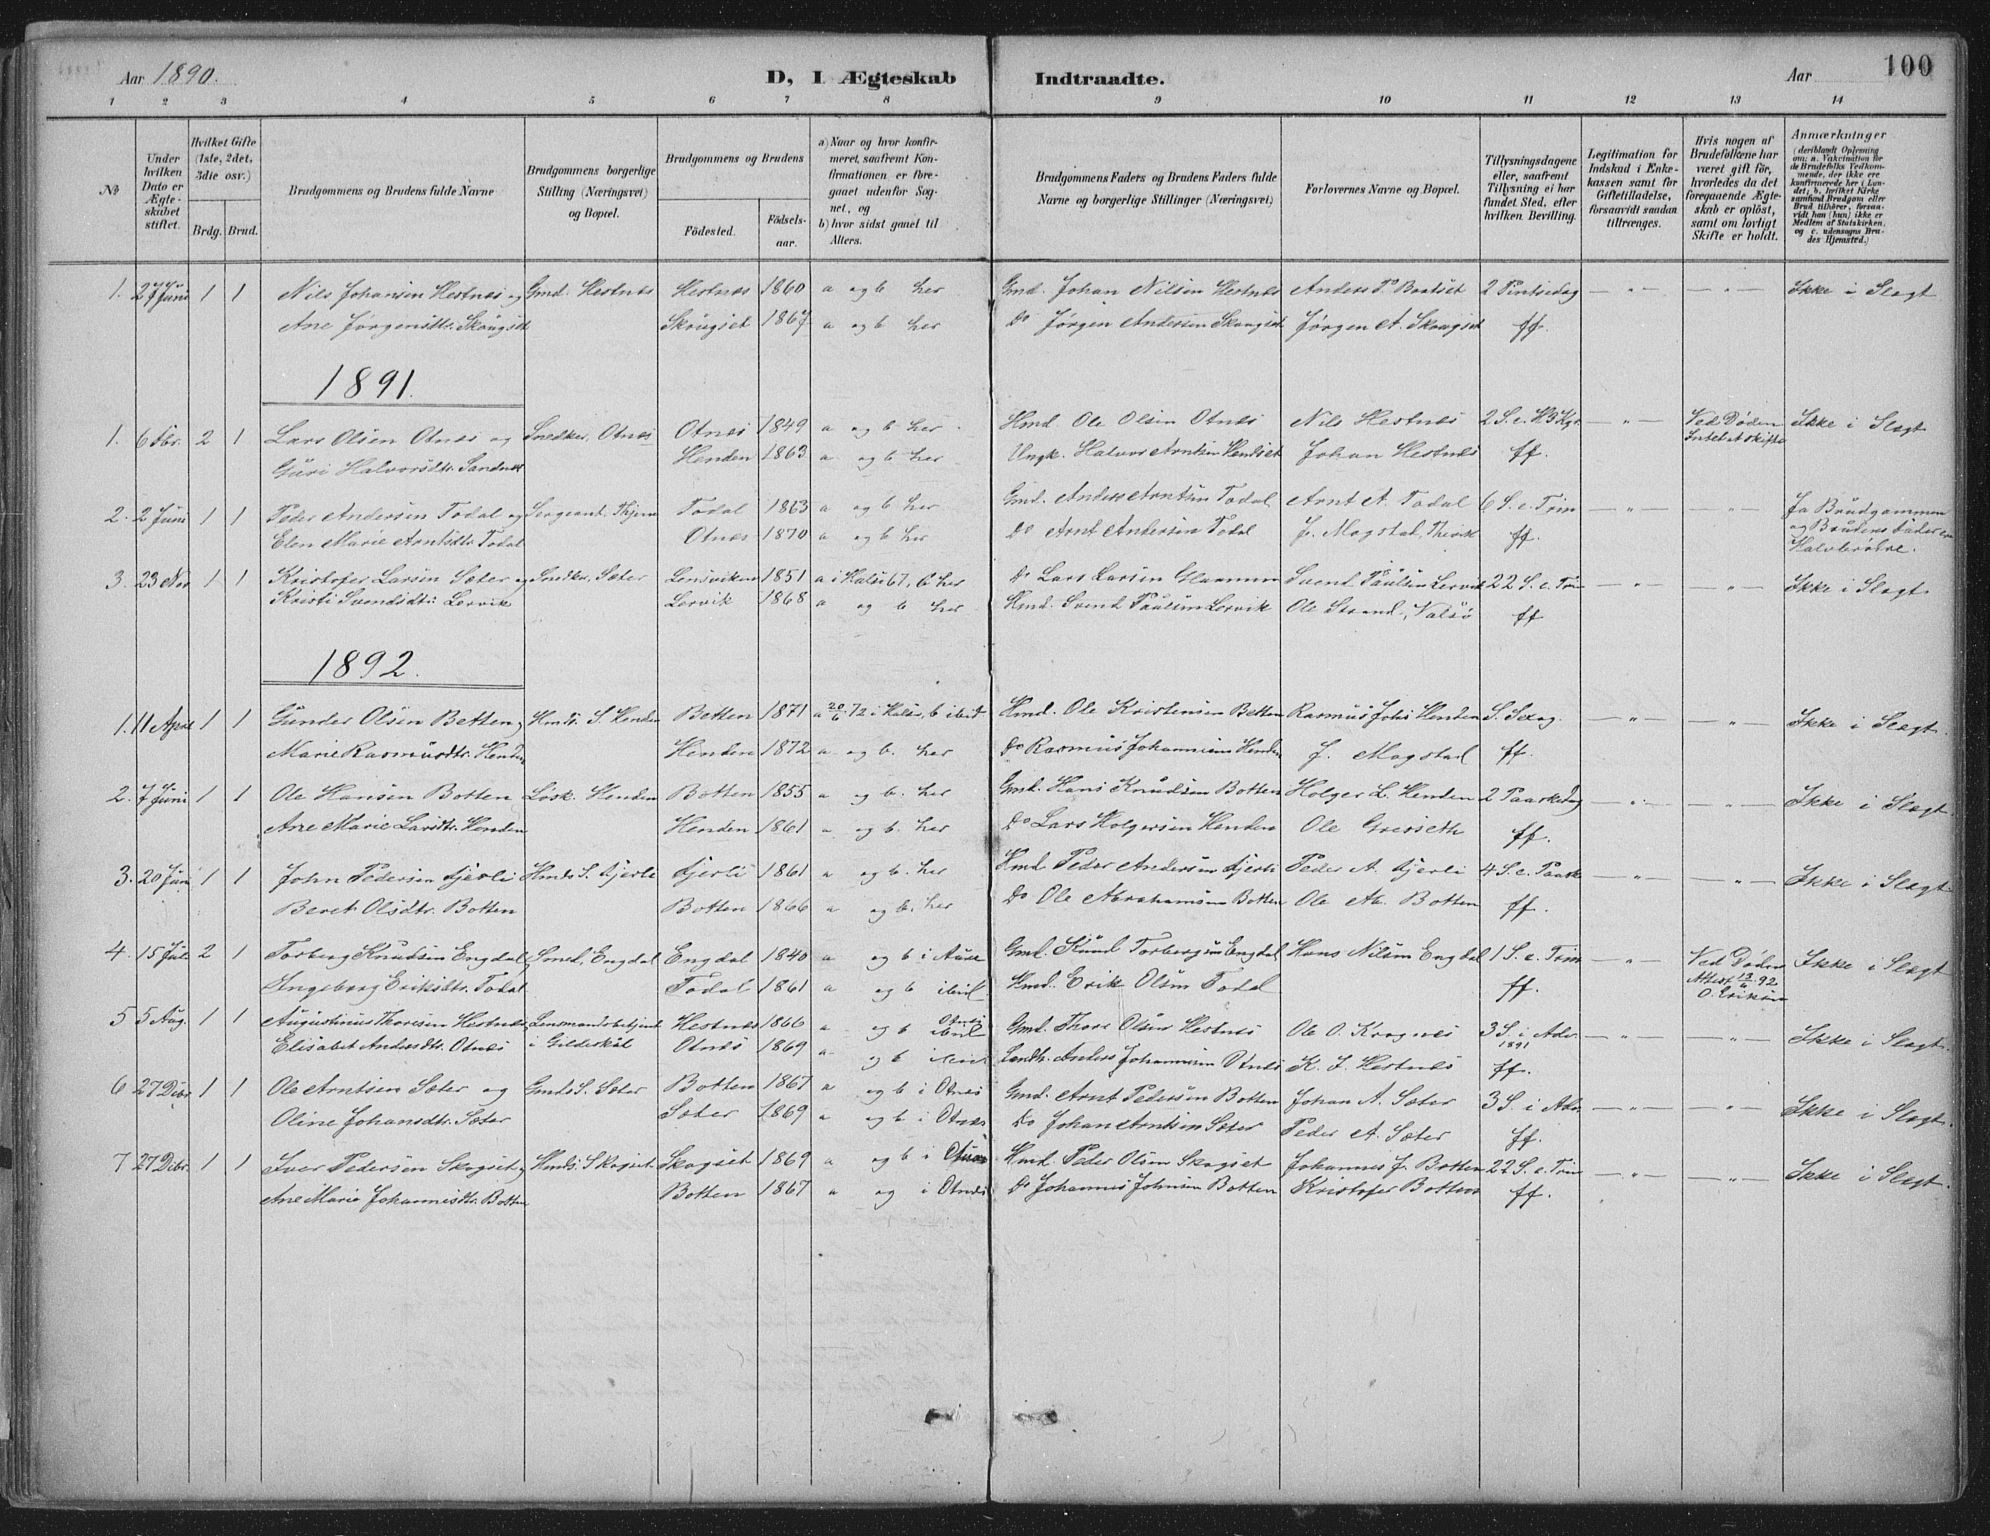 Aar 1890. D, I Ægteskab Indtraadte. Aar 100
1 2 3 4 5 6 7 8 9 10 11 12 13 14
№
Under hvilken Dato er Ægteskabet stiftet.
Hvilket Gifte (1ste, 2det, 3die osv.)
Brdg. Brud.
Brudgommens og Brudens fulde Navne
Brudgommens borgerlige Stilling (Næringsvei) og Bopæl.
Brudgommens og Brudens
Fødested. Fødselsaar.
a) Naar og hvor konfirmeret, saafremt Konfirmationen er foregaaet udenfor Sognet, og
b) hvor sidst gaaet til Alters.
Brudgommens Faders og Brudens Faders fulde Navne og borgerlige Stillinger (Næringsvei)
Forlovernes Navne og Bopæl.
Tillysningsdagene eller, saafremt Tillysning ei har fundet Sted, efter hvilken Bevilling.
Legitimation for Indskud i Enkekassen samt for Giftetilladelse, forsaavidt saadan tiltrænges.
Hvis nogen af Brudefolkene har været gift før, hvorledes da det foregaaende Ægteskab er opløst, samt om lovligt Skifte er holdt.
Anmærkninger (deriblandt Oplysning om: a. Vakcination for de Brudefolks Vedkommende, der ikke ere konfirmerede her i Landet; b. hvilket Kirkesamfund Brudgom eller Brud tilhører, forsaavidt han (hun) ikke er Medlem af Statskirken, og c. udensogns Brudes Hjemsted.)
1. 27 Juni 1 1 Nils Johansen Hestnes og Gmd. Hestnæs Hestnæs 1860 a og b her Gmd. Johan Nilsen Hestnæs Anders P. Baalset 2 Pintsedag — " — — " — Ikke i Slægt
Ane Jørgensdtr. Skougset Skougset 1867 a og b her Do Jørgen Andersen Skougset Jørgen A. Skougset ff.
1891.
1. 6 Fbr. 2 1 Lars Olsen Otnes og Snedker, Otnæs Otnæs 1849 a og b her Hmd. Ole Olsen Otnæs Nils Hestnæs 2 S. e. H3Kgr. — " — Ved Døden Ikke i Slægt
Guri Halvorsdtr. Sandnes Henden 1863 a og b her Ungk. Halvor Arntsen Hendset Johan Hestnæs ff. Intet at skifte
2. 2 Juni 1 1 Peder Andersen Todal og Sergeant, Todal 1863 a og b her Gmd. Anders Arntsen Todal Arnt A. Todal 6 S. e. Trin — " — — " — Ja Brudgommen
Elen Marie Arntsdtr. Todal Otnes 1870 a og b her Do Arnt Andersen Todal J. Magstad, ff. og Brudens Fader ere
Halvbrødre.
3. 23 Nov 1 1 Kristofer Larsen Sæter og Snedker, Sæter Lensviken 1851 a i Halsø 67, b her Do Lars Larsen Svend Paulsen Lervik 22 S. e. Trin — " — — " — Ikke i Slægt
Kristi Svendsdtr. Lervik Lervik 1868 a og b her Hmd. Svend Paulsen Lervik Ole Strand, Valsø ff
1892.
1. 11 April 1 1 Gunder Olsen Betten, Hmds. S. Henden Betten 1871 a i Halsø, b ibid Hmd. Ole Kristensen Betten Rasmus Johs Henden S. Sexag. — " — — " — Ikke i Slægt.
Marie Rasmusdtr. Henden Henden 1872 a og b. her Do Rasmus Johannesen Henden J. Magstad ff.
2. 7 Juni 1 1 Ole Hansen Botten Løsk. Henden Botten 1855 a og b. her Gmd. Hans Knudsen Botten Holger L. Henden 2 Paaskedag — " — — " — Ikke i Slægt
Ane Marie Larsdtr. Henden Henden 1861 a og b. her Do Lars Holgersen Henden Ole Grisseth ff.
3. 20 Juni 1 1 John Pedersen Gjerli Hmds S. Gjerli Gjerli 1861 a og b. her Hmd. Peder Andersen Gjerli Peder A. Gjerli 4 S. e. Paaske — " — — " — Ikke i Slægt.
Beret Olsdtr. Botten Botten 1866 a og b. her Do Ole Abrahamsen Botten Ole Ab. Botten ff.
4. 15 Juli 2 1 Torberg Knudsen Engdal, Smed, Engdal Engdal 1840 a og b i Aure Gmd. Knud Torbergsen Engdal Hans Nilsen Engdal 1 S. e. Trin — " — Ved Døden Ikke i Slægt
Ingeborg Eriksdtr. Todal Todal 1861 a og b ibid. Hmd. Erik Olsen Todal ff. Attest 92
O. Eriksen
5 5 Aug. 1 1 Augustinus Thoresen Hestnes, Lensmandsbetjent Hestnæs 1866 a og b Otnæs Gmd. Thore Olsen Hestnæs Ole O. Krognæs 3 S. i Adv. 1891 — " — — " — Ikke i Slægt.
Elisabet Andersdtr. Otnes i Gildeskål Otnæs 1869 a og b ibid Landh. Anders Johannesen Otnes K. J. Hestnæs ff.
6 27 Decbr. 1 1 Ole Arntsen Sæter og Gmds S. Sæter Botten 1867 a og b i Otnæs Gmd. Arnt Pedersen Botten Johan A. Sæter 3 S. i Adv. — " — — " — Ikke i Slægt.
Oline Johansdtr. Sæter Sæter 1869 a og b i Otnæs Do Johan Arntsen Sæter Peder A. Sæter ff.
7 27 Decbr. 1 1 Iver Pedersen Skogset, Hmds. S. Skogset Skogset 1869 a og b i Otnæs Hmd. Peder Olsen Skogset Johannes J. Botten 22 S. e. Trin — " — — " — Ikke i Slægt.
Ane Marie Johannesdtr. Botten Botten 1867 a og i Otnæs Do Johannes Johnsen Botten Kristofer Botten ff.